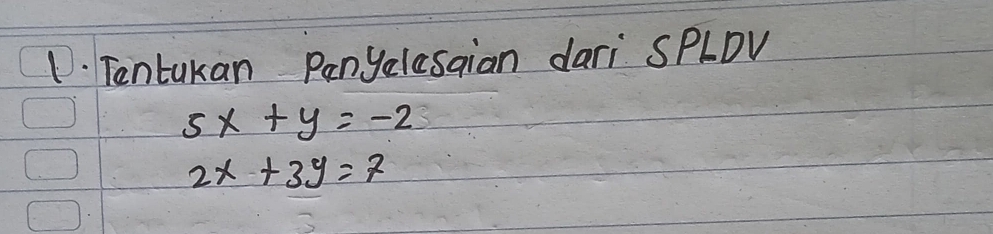 1. Tentukan Penyelesaian dari SPLDV
5x + y = -2
2x + 3y = 7